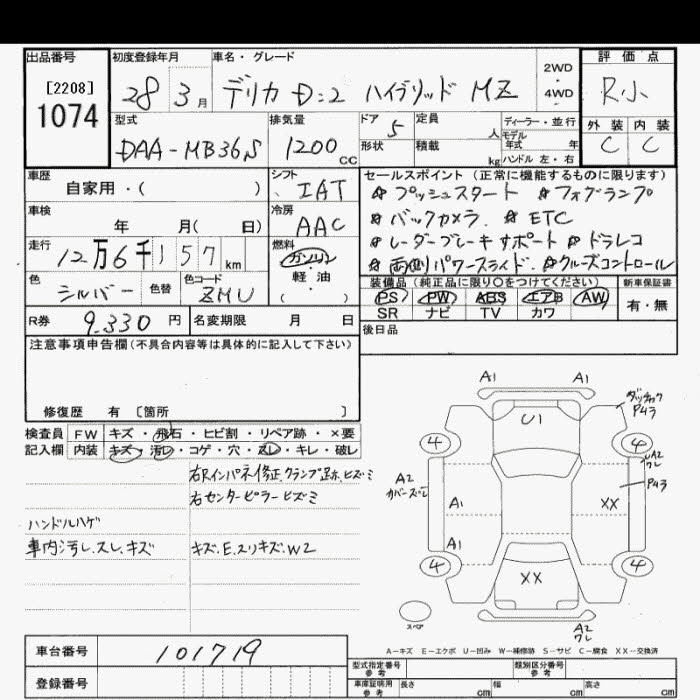 出品番号 初度登録年月 車名・グレード 評価点
[2208]
1074
28 3月 デリカ D:2 ハイブリッド MZ 2WD 4WD R小
型式 排気量 ドア 定員 ディーラー・並行 外装 内装
DAA-MB36S 1200cc 5 人 モデル年式 年 C C
形状 積載 kg ハンドル 左・右
車歴 シフト セールスポイント(正常に機能するものに限ります)
自家用・( ) IAT ☆プッシュスタート ☆フォグランプ
車検 冷房 ☆バックカメラ ☆ETC
年 月( 日) AAC ☆レーダーブレーキサポート ☆ドラレコ
走行 燃料 ☆両側パワースライド ☆クルーズコントロール
12万6千157km ガソリン・軽・油 ( )
色 色替 色コード 装備品(純正品に限り○をつけてください) 新車保証書
シルバー ZMU PS PW ABS エアB AW 有・無
SR ナビ TV カワ
R券 9,330円 名変期限 月 日 後日品
注意事項申告欄(不具合内容等は具体的に記入して下さい)
修復歴 有 [箇所 ]
検査員 FW キズ・飛石・ヒビ割・リペア跡・×要
記入欄 内装 キズ・汚レ・コゲ・穴・スレ・キレ・破レ
右Rインパネ修正,クランプ跡,ヒズミ
右センターピラーヒズミ
ハンドルハゲ
車内汚レ.スレ.キズ キズ.E.スリキズ.W2
A1 A1
U1
4 4
A2
A1 XX
A1
4 4
XX
スペア
A2
A-キズ E-エクボ U-凹み W-補修跡 S-サビ C-腐食 XX-交換済
車台番号 101719
登録番号
型式指定番号 参考 類別区分番号 参考
車庫証明用 参考 長さ cm 幅 cm 高さ cm